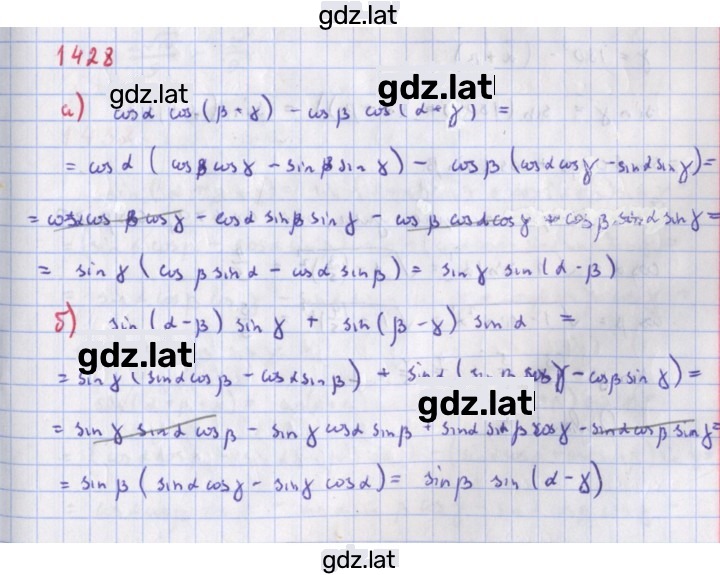 gdz.lat
1428
gdz.lat
gdz.lat
а) cosα cos(β+γ) - cosβ cos(α+γ) =
= cosα (cosβ cosγ - sinβ sinγ) - cosβ (cosα cosγ - sinα sinγ) =
= cosα cosβ cosγ - cosα sinβ sinγ - cosβ cosα cosγ + cosβ sinα sinγ =
= sinγ (cosβ sinα - cosα sinβ) = sinγ sin(α-β)
б) sin(α-β) sinγ + sin(β-γ) sinα =
gdz.lat
= sinγ (sinα cosβ - cosα sinβ) + sinα (sinβ cosγ - cosβ sinγ) =
gdz.lat
= sinγ sinα cosβ - sinγ cosα sinβ + sinα sinβ cosγ - sinα cosβ sinγ =
= sinβ (sinα cosγ - sinγ cosα) = sinβ sin(α-γ)
gdz.lat